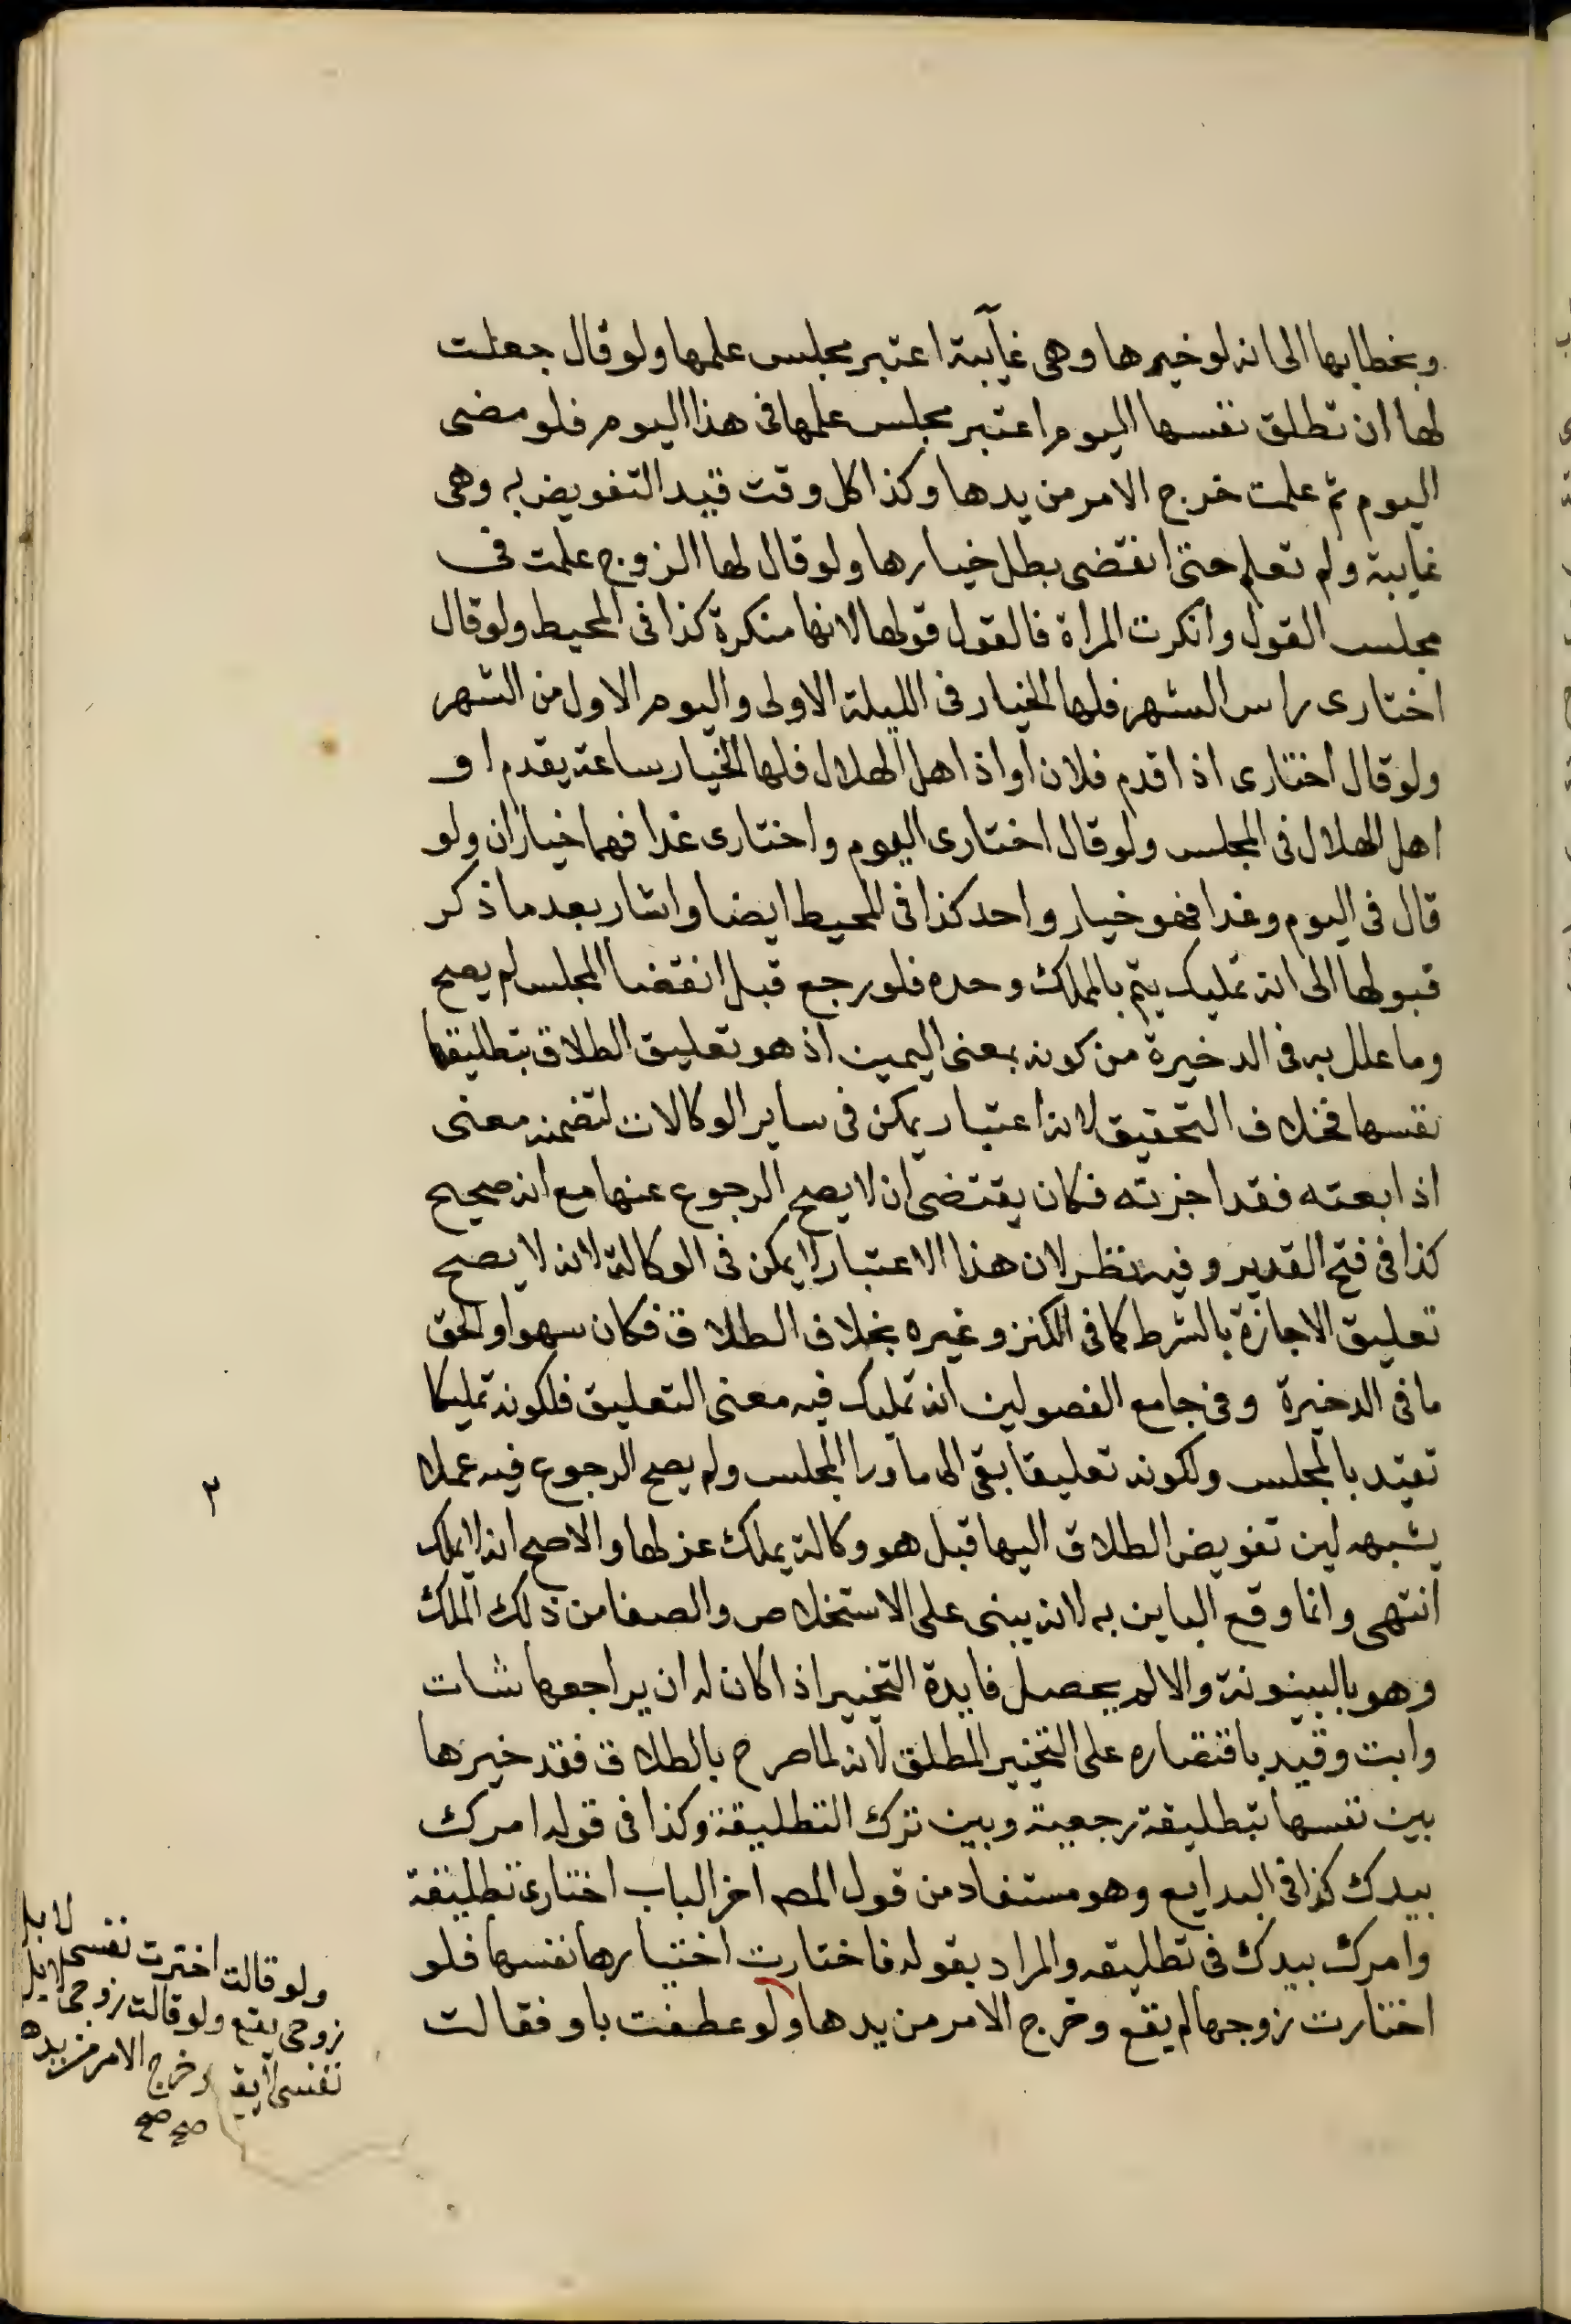 وبخطابها الى انه لو خيرها وهى غآيبة اعتبر مجلس علمها ولو قال جعلت
لها ان تطلق نفسها اليوم اعتبر مجلس علمها فى هذا اليوم فلو مضى
اليوم ثم علمت خرج الامر من يدها وكذا كل وقت قيد التفويض به وهى
غايبة ولم تعلم حتى انقضى بطل خيارها ولو قال لها الزوج علمت فى
مجلس القول وانكرت المراة فالقول قولها لانها منكرة كذا فى المحيط ولو قال
اختارى راس الشهر فلها الخيار فى الليلة الاولى واليوم الاول من الشهر
ولو قال اختارى اذا قدم فلان او اذا اهل الهلال فلها الخيار ساعة يقدم او
اهل الهلال فى المجلس ولو قال اختارى اليوم واختارى غدا فهما خياران ولو
قال فى اليوم وغدا فهو خيار واحد كذا فى المحيط ايضا واشار بعدم ما ذكر
قبولها الى انه تمليك يتم بالمملك وحده فلو رجع قبل انقضا المجلس لم يصح
وما علل به فى الدخيرة من كونه بمعنى اليمين اذ هو تعليق الطلاق بتطليقها
نفسها فخلاف التحقيق لانه اعتبار يمكن فى ساير الوكالات لتضمنه معنى
اذا بعته فقد اجزته فكان يقتضى ان لا يصح الرجوع عنها مع انه صحيح
كذا فى فتح القدير وفيه نظر لان هذا الاعتبار لا يمكن فى الوكالة لانه لا يصح
تعليق الاجازة بالشرط كما فى الكنز وغيره بخلاف الطلاق فكان سهوا والحق
ما فى الدخيرة وفى جامع الفصولين انه تمليك فيه معنى التعليق فلكونه تمليكا
تقيد بالمجلس ولكونه تعليقا بقى الى ما ورا المجلس ولم يصح الرجوع فيه عملا
بشبهه لين تفويض الطلاق اليها قيل هو وكالة يملك عزلها والاصح انه لا يملك
انتهى وانما وقع الباين به لانه يبنى على الاستخلاص والصفا من ذلك الملك
وهو بالبينونة والا لم يحصل فايدة التخيير اذا كان له ان يراجعها شات
وابت وقيد باقتصاره على التخيير المطلق لانه لما صرح بالطلاق فقد خيرها
بين نفسها بتطليقة رجعية وبين ترك التطليقة وكذا فى قوله امرك
بيدك كذا فى البدايع وهو مستفاد من قول المصه اخر الباب اختارى تطليقة
وامرك بيدك فى تطليقه والمراد بقوله فاختارت اختيارها نفسها فلو
اختارت زوجها لم يقع وخرج الامر من يدها ولو عطفت باو فقالت
٢
ولو قالت اخترت نفسى لا بل
زوجى يقع ولو قالت زوجى لا بل
نفسى لا يقع وخرج الامر من يدها
صح صح